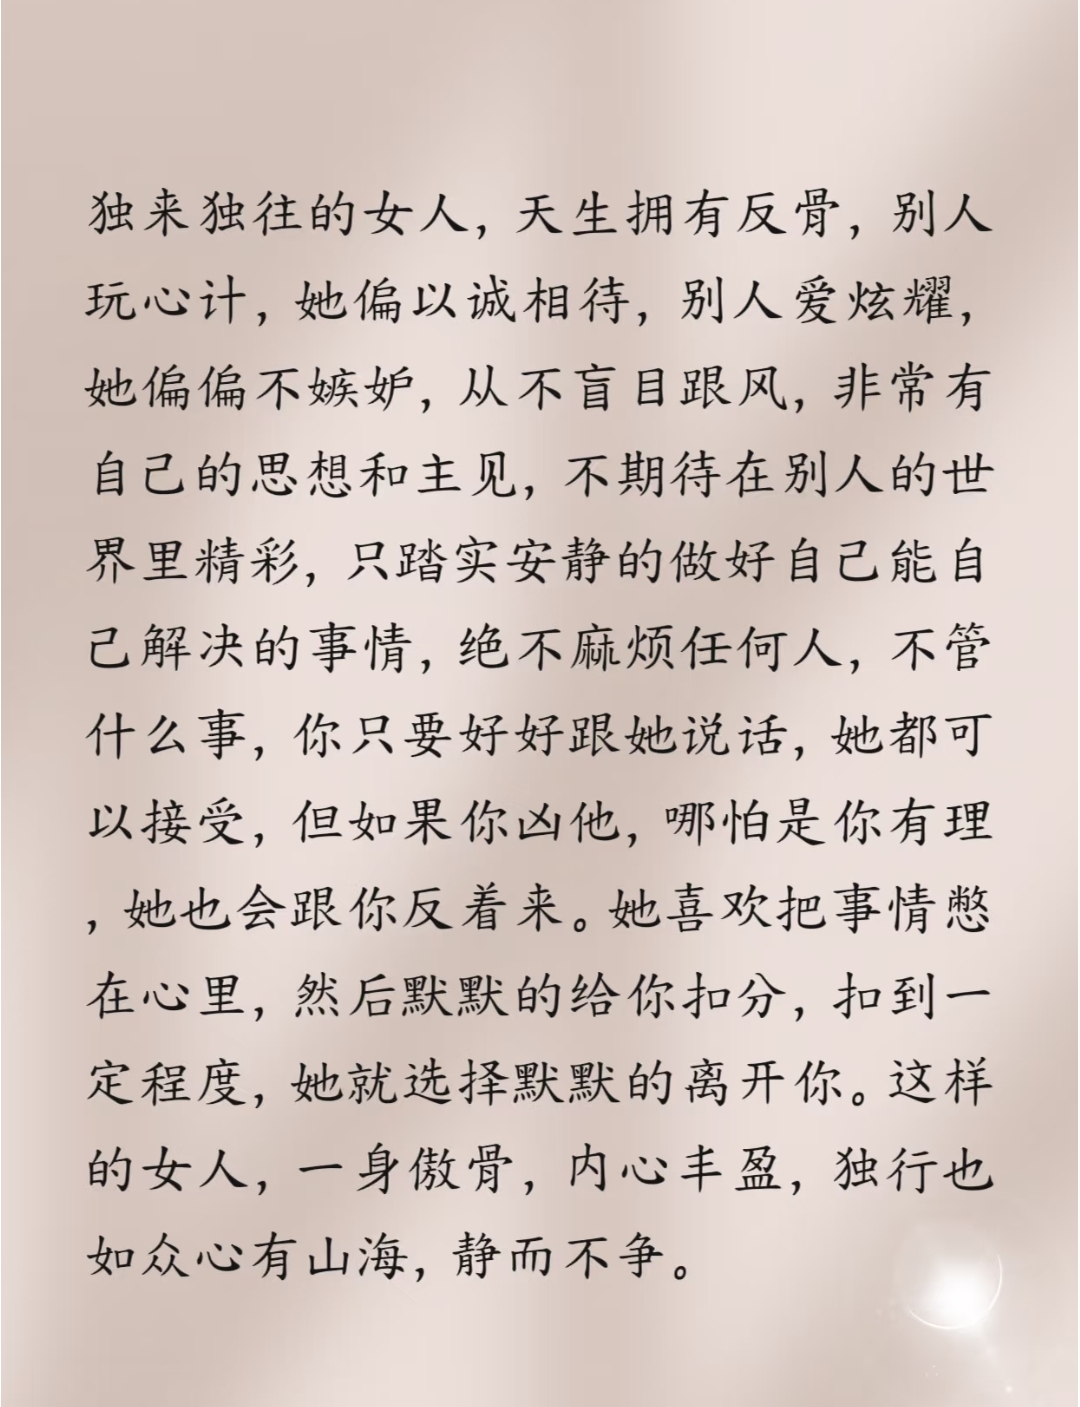 独来独往的女人，天生拥有反骨，别人
玩心计，她偏以诚相待，别人爱炫耀，
她偏偏不嫉妒，从不盲目跟风，非常有
自己的思想和主见，不期待在别人的世
界里精彩，只踏实安静的做好自己能自
己解决的事情，绝不麻烦任何人，不管
什么事，你只要好好跟她说话，她都可
以接受，但如果你凶他，哪怕是你有理
，她也会跟你反着来。她喜欢把事情憋
在心里，然后默默的给你扣分，扣到一
定程度，她就选择默默的离开你。这样
的女人，一身傲骨，内心丰盈，独行也
如众心有山海，静而不争。